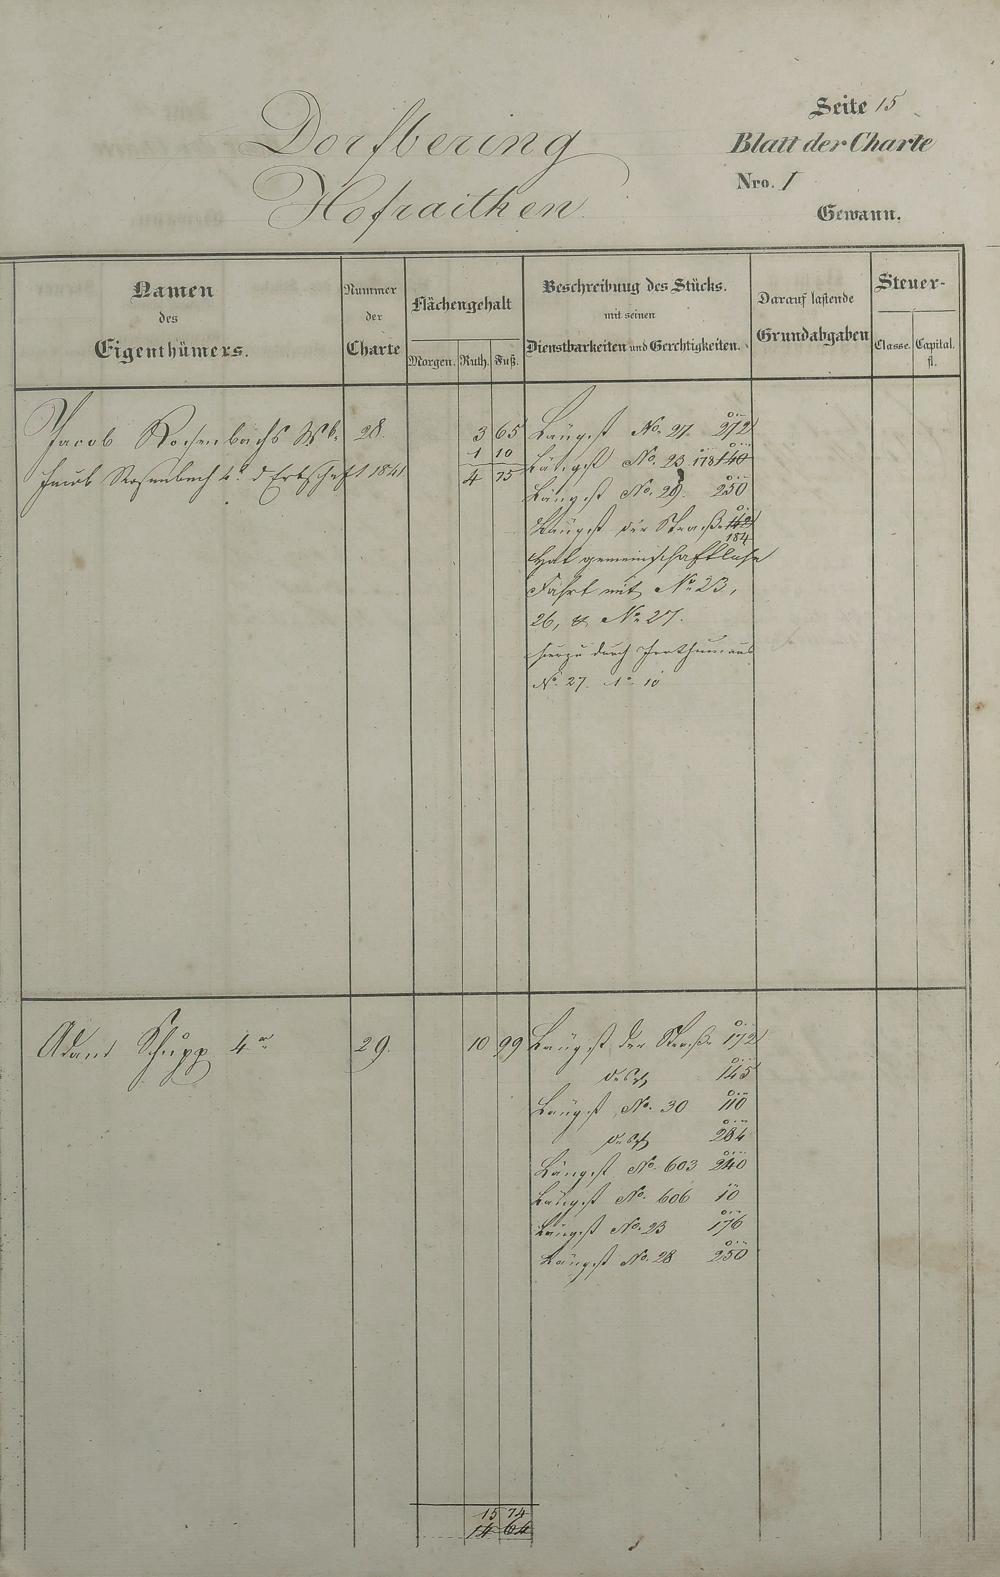 Seite 15
Dorfbering
Blatt der Charte
Nro. I
Hofraithen
Gewann.
Namen
des
Eigenthümers.
Nummer
der
Charte
Flächengehalt
Morgen. Ruth. Fuß.
Beschreibung des Stücks.
mit seinen
Dienstbarkeiten und Gerechtigkeiten.
Darauf lastende
Grundabgaben
Steuer-
Classe. Capital.
fl.
Jacob Rosenbachs Wb. 28. 3 65 Längst No. 27. 272
1 10 Längst No. 23 178 140
Jacob Rosenbach d Erbschaft 1841 4 75
Längst No. 29. 250
Längst der Straße 142
184
Hat gemeinschaftliche
Fahrt mit No. 23,
26, & No. 27.
hierzu durch
No. 27. 1° 10
Adam Schupp 4 29. 10 99 Längst der Straße 172
145
Längst No. 30 110
284
Längst No. 603 240
Längst No. 606 10
Längst No. 23 176
Längst No. 28 250
15 74
14 64